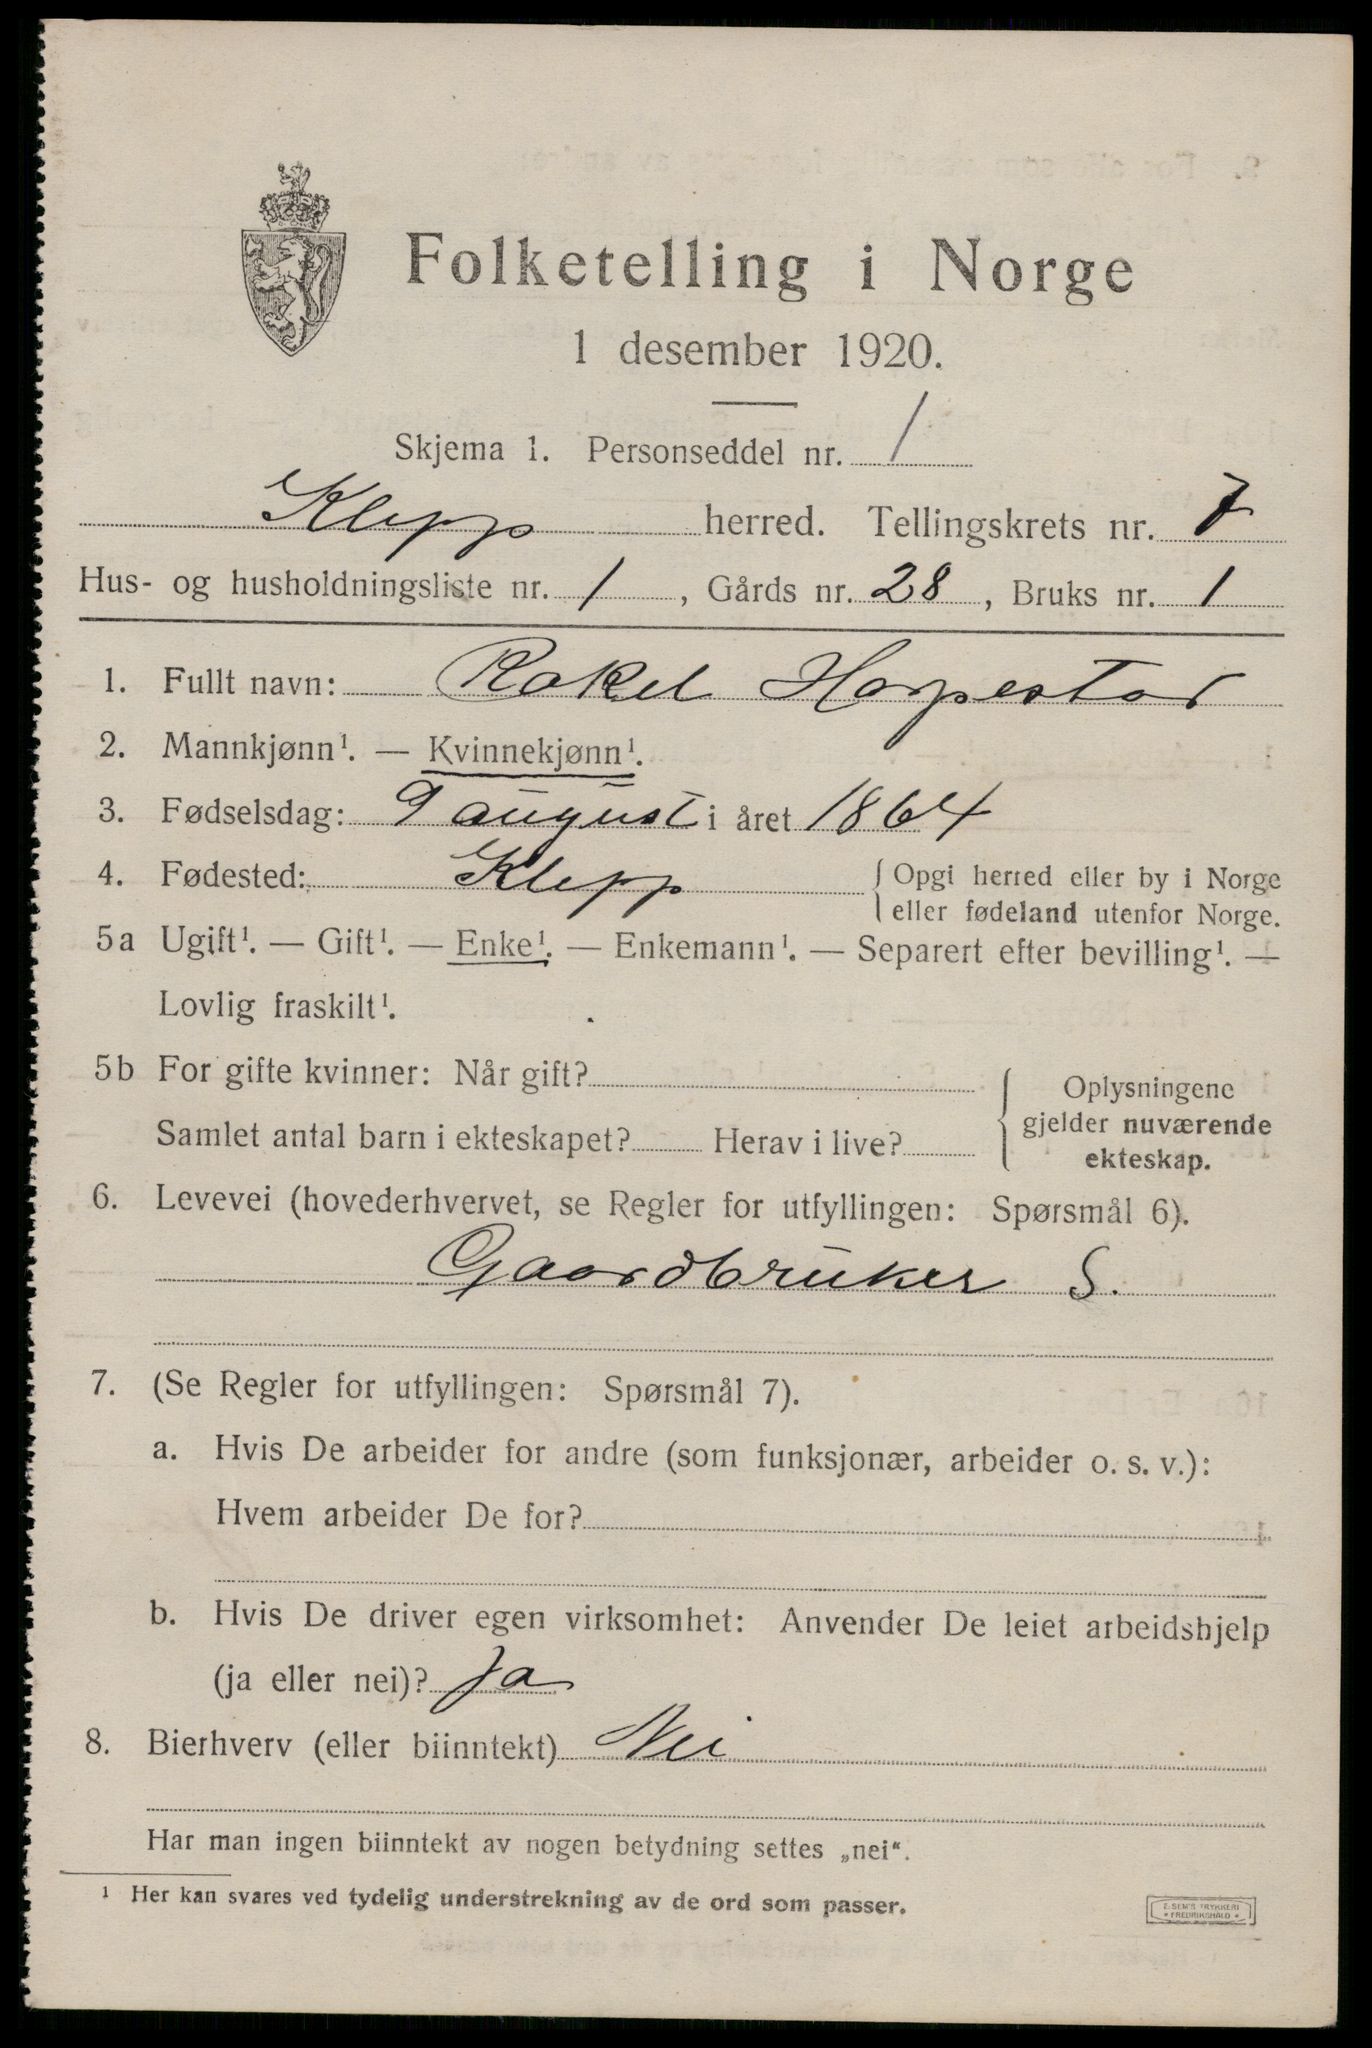 Folketelling i Norge
1 desember 1920.
Skjema 1. Personseddel nr. 1
Klepp herred. Tellingskrets nr. 7
Hus- og husholdningsliste nr. 1, Gårds nr. 28, Bruks nr. 1
1. Fullt navn: Rakel Horpestad
2. Mannkjønn¹. — Kvinnekjønn¹.
3. Fødselsdag: 9 august i året 1864
4. Fødested: Klepp { Opgi herred eller by i Norge
eller fødeland utenfor Norge.
5a Ugift¹. — Gift¹. — Enke¹. — Enkemann¹. — Separert efter bevilling¹. —
Lovlig fraskilt¹.
5b For gifte kvinner: Når gift?
Samlet antal barn i ekteskapet? Herav i live?
Oplysningene
gjelder nuværende
ekteskap.
6. Levevei (hovederhvervet, se Regler for utfyllingen: Spørsmål 6).
Gaardbruker S.
7. (Se Regler for utfyllingen: Spørsmål 7).
a. Hvis De arbeider for andre (som funksjonær, arbeider o. s. v.):
Hvem arbeider De for?
b. Hvis De driver egen virksomhet: Anvender De leiet arbeidshjelp
(ja eller nei)? Ja
8. Bierhverv (eller biinntekt) Nei
Har man ingen biinntekt av nogen betydning settes „nei“.
¹ Her kan svares ved tydelig understrekning av de ord som passer.
E. SEM'S TRYKKERI
FREDRIKSHALD